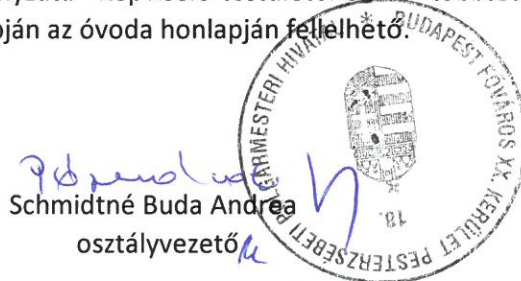 pján az óvoda honlapján fellelhető.
Schmidtné Buda Andrea
osztályvezető
BUDAPEST FŐVÁROS XX. KERÜLET PESTERZSÉBETI POLGÁRMESTERI HIVATAL *
18.